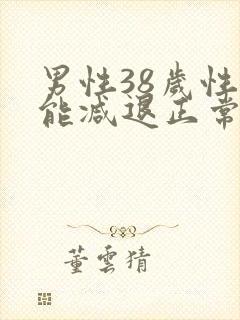 男性38歲性
能減退正常
董雲猜